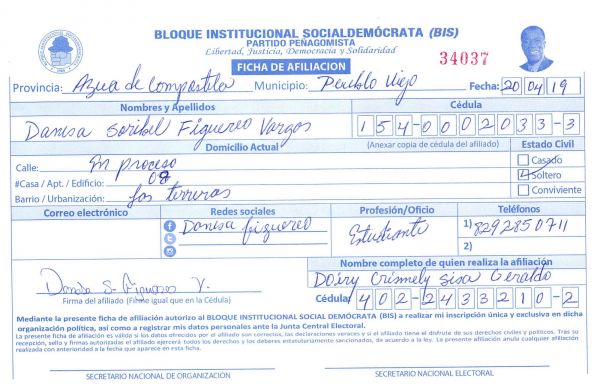 BLOQUE INSTITUCIONAL SOCIALDEMÓCRATA (BIS)
PARTIDO PEÑAGOMISTA
Libertad, Justicia, Democracia y Solidaridad
FICHA DE AFILIACION
34037
Provincia: Azua de Compostela Municipio: Pueblo Viejo Fecha: 20 04 19
Nombres y Apellidos Cédula
Danisa Soribel Figuereo Vargas 154-0002033-3
Domicilio Actual (Anexar copia de cédula del afiliado) Estado Civil
Calle: m proceso Casado
#Casa / Apt. / Edificio: 08 Soltero
Barrio / Urbanización: Las terreras Conviviente
Correo electrónico Redes sociales Profesión/Oficio Teléfonos
Danisa figuereo Estudiante 1) 8292850711
2)
Nombre completo de quien realiza la afiliación
Doiry Crismely Sisa Geraldo
Danisa S. Figuereo V.
Firma del afiliado (Firma igual que en la Cédula) Cédula: 402-2433210-2
Mediante la presente ficha de afiliación autorizo al BLOQUE INSTITUCIONAL SOCIAL DEMÓCRATA (BIS) a realizar mi inscripción única y exclusiva en dicha
organización política, así como a registrar mis datos personales ante la Junta Central Electoral.
La presente ficha de afiliación es válida y los datos ofrecidos por el afiliado son correctos, las declaraciones veraces y si el afiliado tiene el disfrute de sus derechos civiles y políticos. Tras su
recepción, sello y firmas autorizadas el afiliado ejercerá todos los derechos y los deberes estatutariamente sancionados, de acuerdo a la ley. La presente afiliación anula cualquier afiliación
realizada con anterioridad a la fecha que aparece en esta ficha.
SECRETARIO NACIONAL DE ORGANIZACIÓN SECRETARIO NACIONAL ELECTORAL